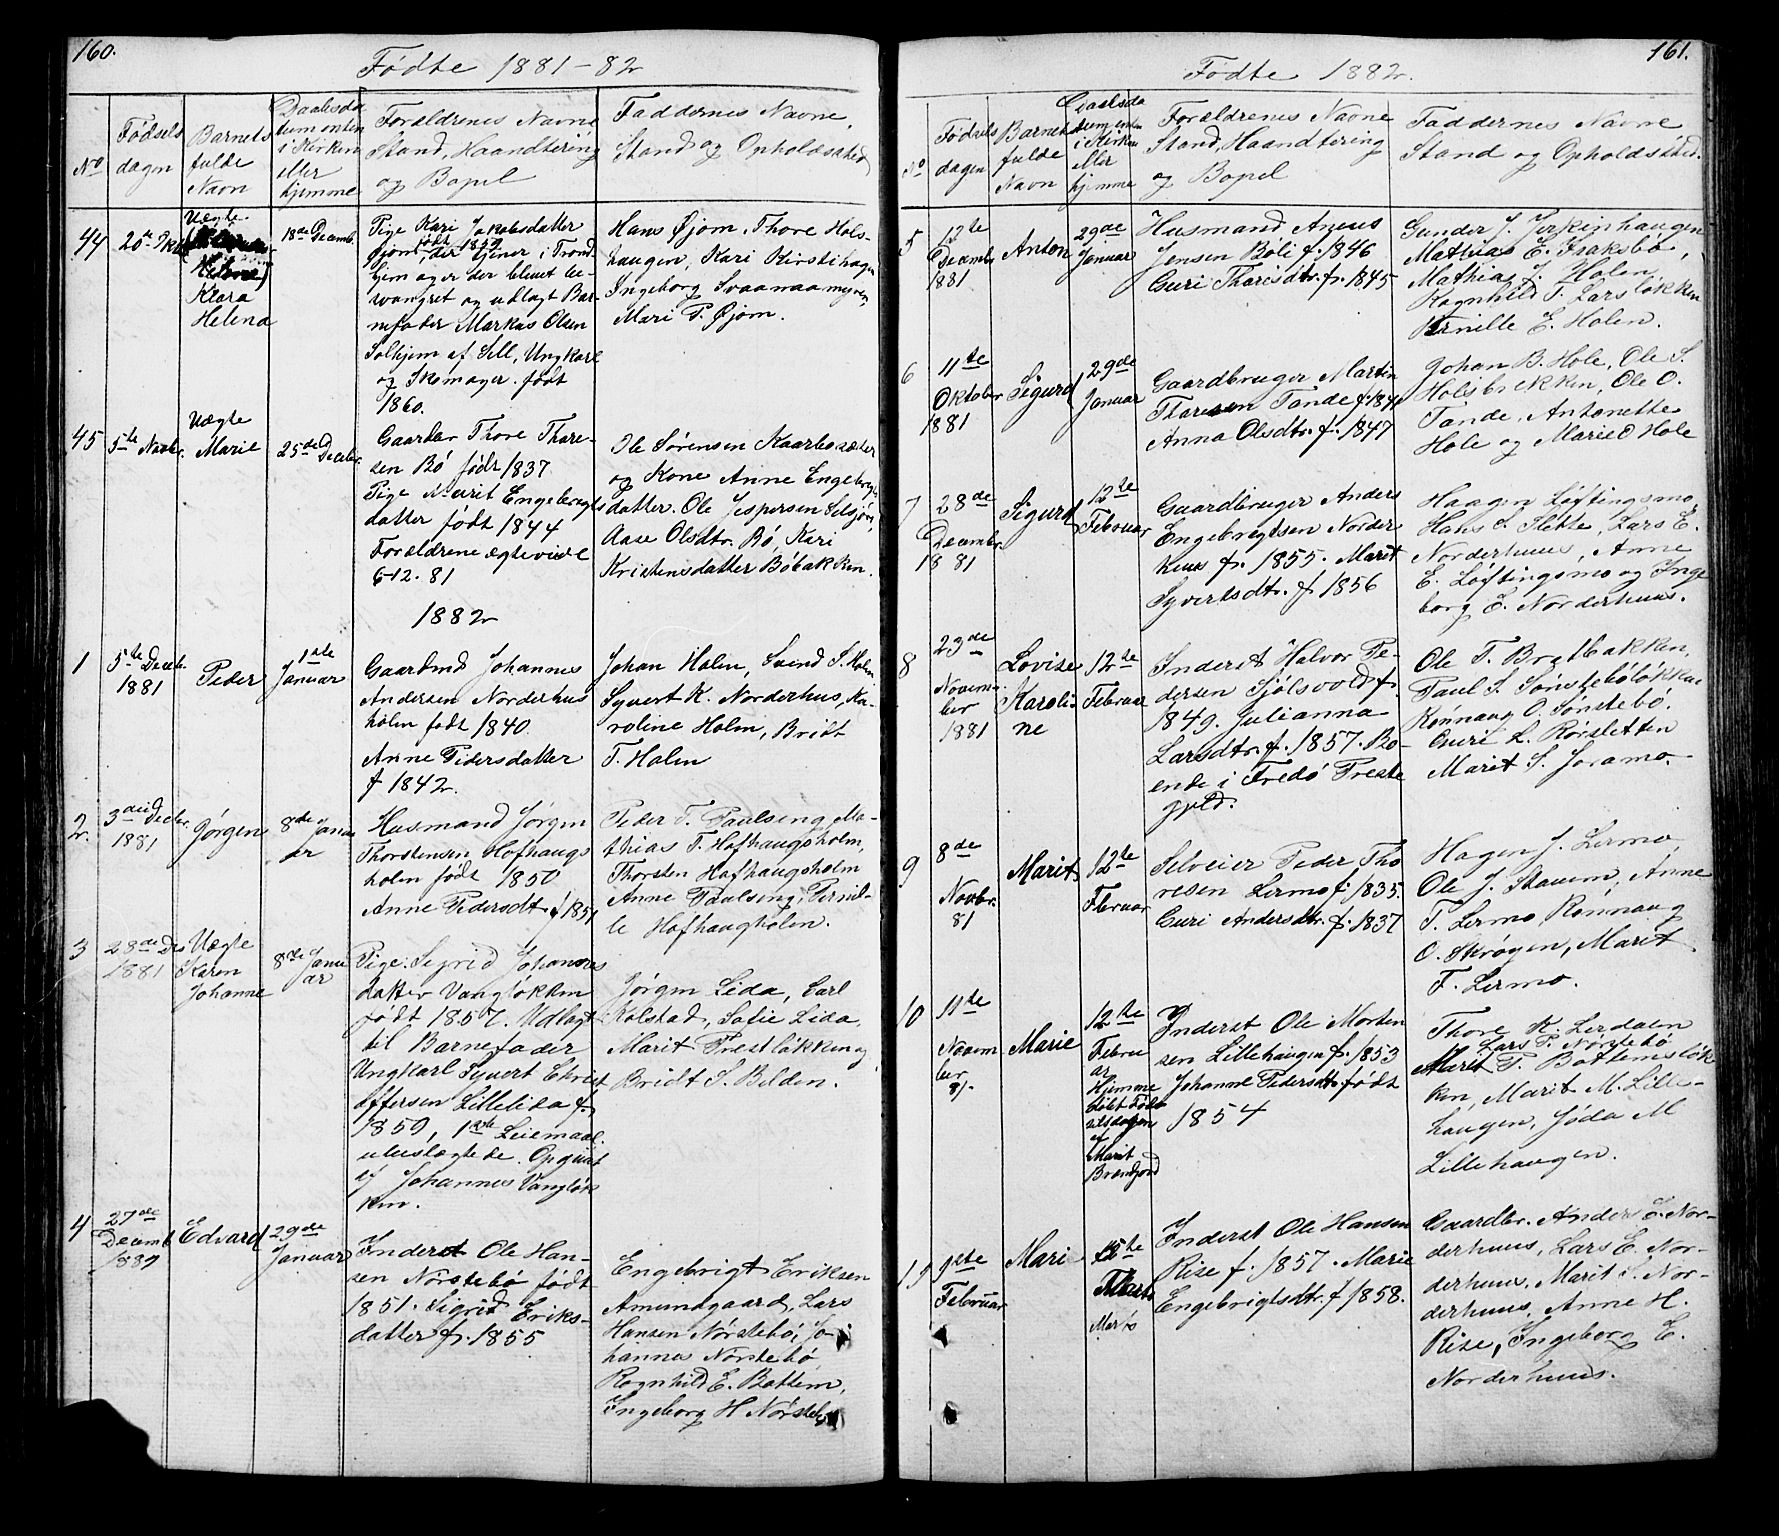 160.
Födte 1881-82
No
Fødsels
dagen
Barnets
fulde
Navn
Daabsda
tum enten
i Kirken
eller
hjemme
Forældrenes Navne
Stand, Haandtering
og Bopel
Faddernes Navne,
Stand og Opholdssted
44
Uægte
Klara
Helena
18de Decemb.
Pige Kari Jakobsdatter
Øjom født 1859, der tjener i Trond
hjem og er der blevet be-
svangret og udlagt Bar-
nefader Markus Olsen
Solhjem af Sell, Ungkarl
og Skomager. født
1860.
Hans Øjom, Thore Hols-
haugen, Kari Kirstihagen
Ingeborg Svaanaamyren
Mari P. Øjom.
45
5te Novbr.
Uægte
Marie
25de Decbr.
Gaardbr Thore Thore-
sen Bö født 1837
Pige Marit Engebregts
datter født 1844
Forældrene ægteviede
6-12. 81
Ole Sørensen Kaarbøsæter
og Kone Anne Engebregts
datter. Ole Jespersen Selsjöen,
Aase Olsdtr. Bö, Kari
Kristensdatter Böbakken.
1882
1
5te Decbr.
1881
Peder
1ste
Januar
Gaardmd Johannes
Andersen Norderhus
holen født 1840.
Anne Pedersdatter
f 1842.
Johan Holen, Svend S. Holen
Syvert K. Norderhus, Ka-
roline Holen, Bridt
T. Holen
2
3die Decbr.
1881
Jørgen
8de Janu
ar
Husmand Jørgen
Thorstensen Hofhaugs
holen født 1850
Anne Pedersdt f 1851
Peder T. Paulseng, Ma-
thias T. Hofhaugsholm,
Thorsten Hofhaugsholm
Anne Paulseng, Pernil-
le Hofhaugholen.
3
28de Des
1881
Uægte
Karen
Johanne
8de Janu
ar
Pige: Segrid Johannes
datter Vangløkken
født 1857. Udlagt
til Barnefader
Ungkarl Syvert Christ
offersen Lillelida f.
1859, 1ste Leiemaal.
ubeslægtede. Opgivet
af Johannes Vangløk
ken.
Jörgen Lida, Carl
Kolstad, Sofie Lida,
Marit Prestløkken og
Bridt S. Bilden.
4
27de
Decemb
Edvard
29de
Januar
Inderst Ole Han-
sen Nörstebö født
1851. Sigrid Eriks-
datter f. 1855
Engebrigt Eriksen
Amundgaard, Lars
Hansen Nörstebö, Jo-
hannes Nörstebö
Ragnhild E. Bottem,
Ingeborg H Nörstebö
161.
Födte 1882.
No
Fødsels
dagen
Barnets
fulde
Navn
Daabsda
tum enten
i Kirken
eller
hjemme
Forældrenes Navne
Stand, Haandtering
og Bopel
Faddernes Navne
Stand og Opholdssted.
5
12te
Decembr
1881
Anton
29de
Januar
Husmand Aneus
Jensen Böli f. 1846
Guri Tharisdtr. f. 1845
Gunder J. Jerkinhaugen
Mathias E. Isaksbö,
Mathias J. Holen
Ragnhild T. Larsløkken
Pernille E. Holen.
6
11te
Oktober
1881
Sigurd
29de
Januar
Gaardbruger Martin
Tharesen Tande f. 1841
Anna Olsdtr. f. 1847
Johan B. Hole, Ole S.
Holsbrekken, Ole O.
Tande, Antonette
Hole og Marie O Hole
7
28de
Decembr.
1881
Sigurd
12te
Februar
Gaardbruger Anders
Engebrigtsen Norder
huus f. 1855. Marit
Syvertsdtr. f 1856
Haagen Løftingsmo,
Hans S. Flette, Lars E.
Norderhuus, Anne
E. Løftingsmo og Inge
borg E. Norderhuus.
8
23de
Novem-
ber
1881
Lovise
Karoli-
ne
12te
Februar
Inderst Halvor Pe-
dersen Sjölsvold f
1849. Julianna
Larsdtr. f. 1857. Bo-
ende i Fredö Preste
gjeld.
Ole T. Bratbakken,
Paul S. Sönstebölökken
Rönnaug O. Sönstebö.
Guri L. Rörsletten
Marit S. Joramo.
9
8de
Novbr.
81
Marit
12te
Februar
Selveier Peder Tho
resen Lermo f. 1835.
Guri Andersdtr. f. 1837
Hagen J. Lermo,
Ole J. Stavem, Anne
T. Lermo, Rönnaug
O. Skrögen, Marit
F. Lermo.
10
11te
Novem
ber
81.
Marie
12te
Febru
ar
Hjemme
døbt Föd
selsdagen
af
Marit
Brændjord
Inderst Ole Morten
sen Lillehaugen f. 1853
Johanne Pedersdtr født
1854
Thore K. Lerdalen
Lars P. Nörstebö
Marit T. Bottemsløk
ken, Marit M. Lille-
haugen, Jöda M
Lillehaugen.
1ste
Februar
Mari
Inderst Ole Hansen
Rise f. 1857. Marie
Engebrigtsdtr. f 1858.
Gaardbr. Anders E. Nor-
derhuus, Lars E. Nor-
derhuus, Marit S. Nor-
derhuus, Anne H.
Rise, Ingeborg E.
Norderhuus.